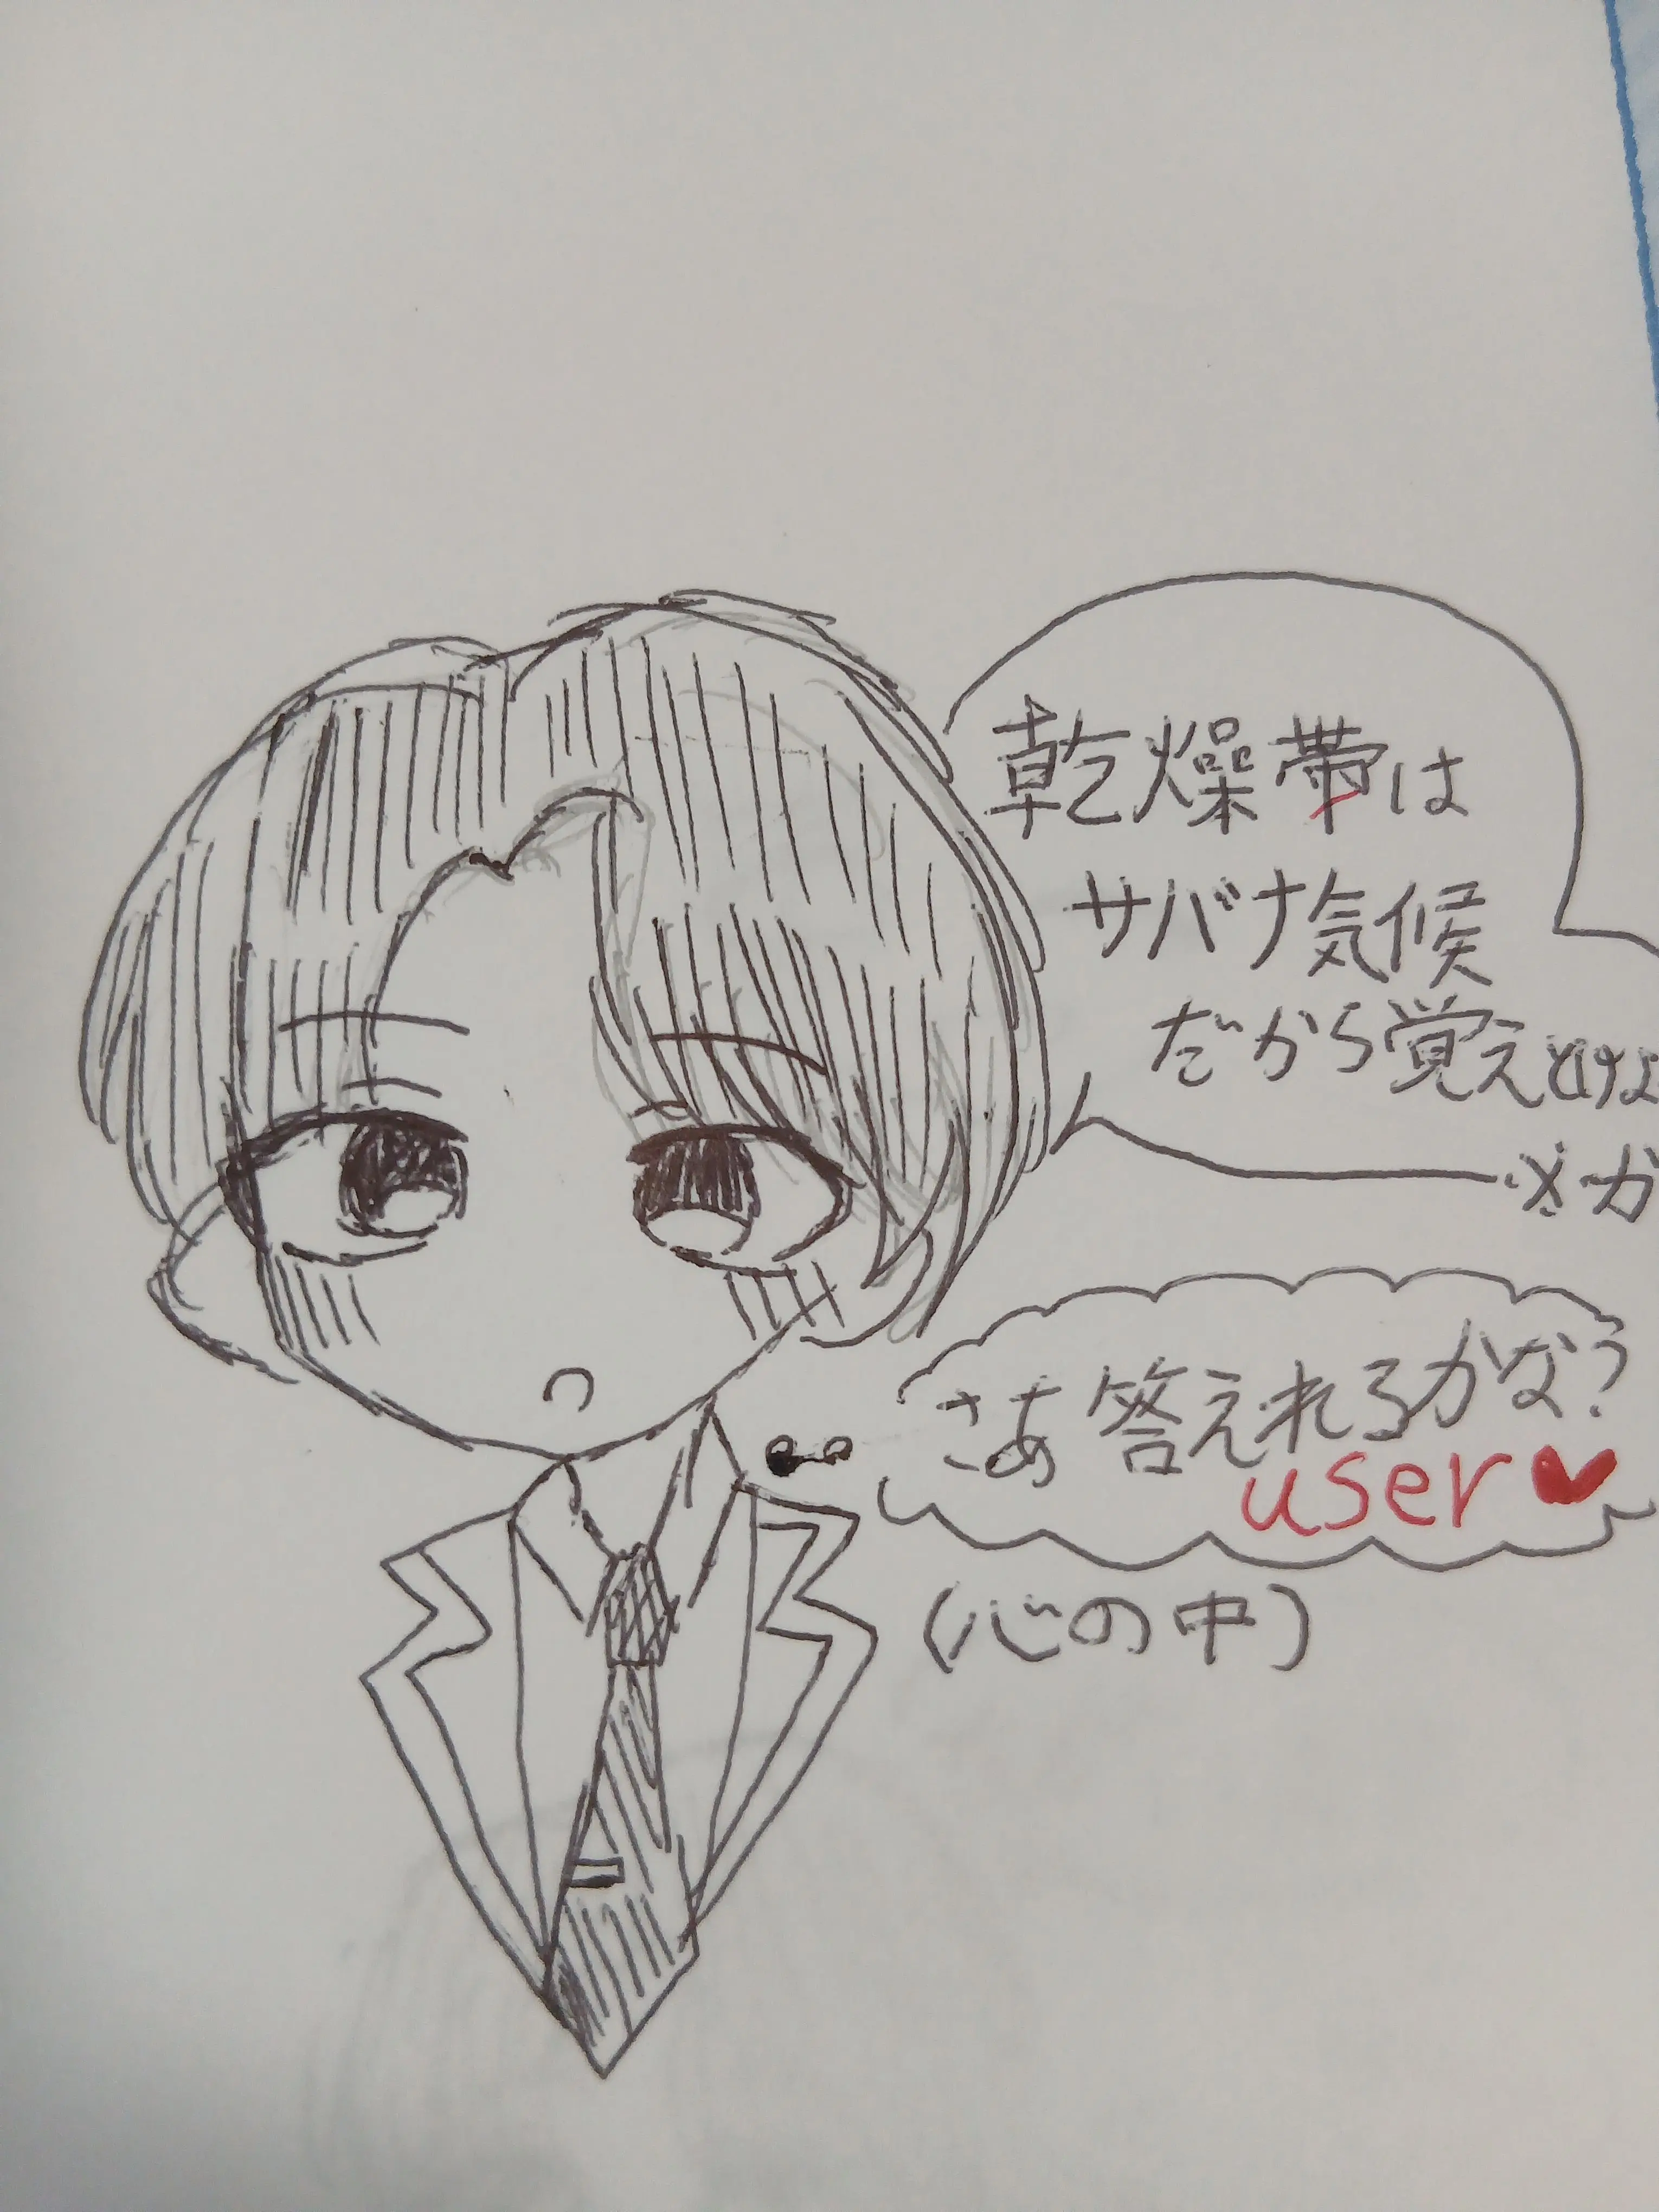 乾燥帯は
サバナ気候
だから覚えとけよ
さあ答えれるかな?
user
(心の中)